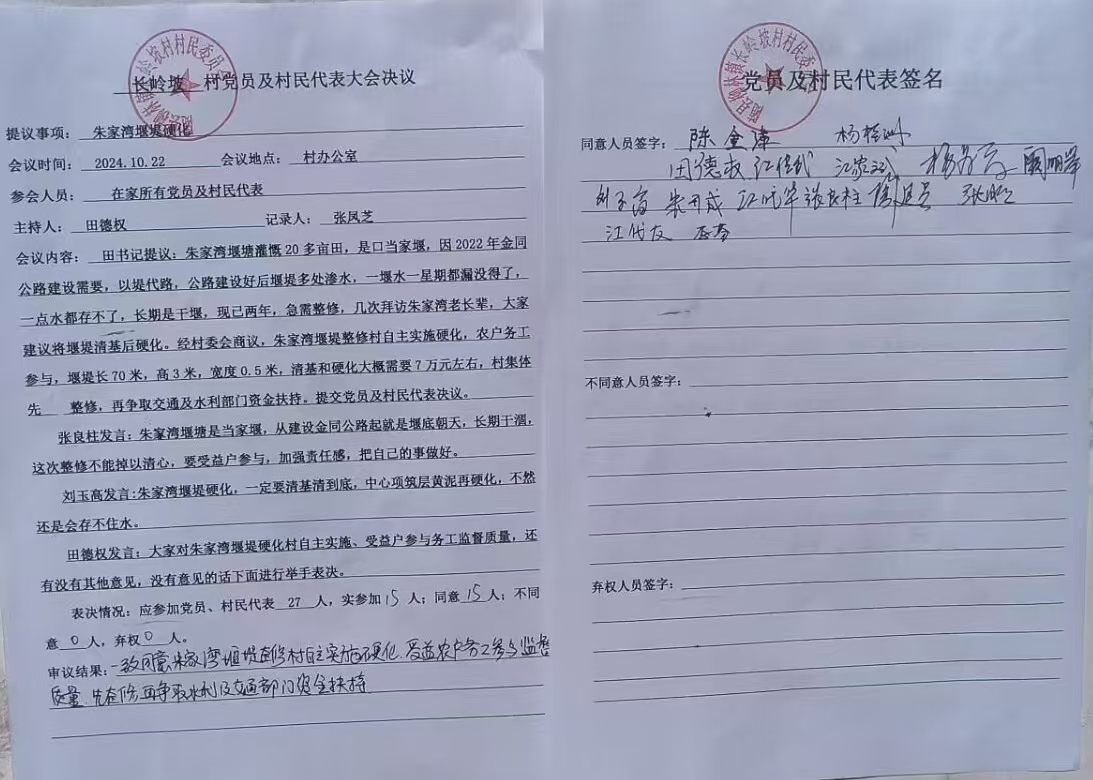 长岭坡 村党员及村民代表大会决议
提议事项： 朱家湾堰堤硬化
会议时间： 2024.10.22 会议地点： 村办公室
参会人员： 在家所有党员及村民代表
主持人： 田德权 记录人： 张凤芝
会议内容： 田书记提议：朱家湾堰塘灌慨20多亩田，是口当家堰，因2022年金同
公路建设需要，以堤代路，公路建设好后堰堤多处渗水，一堰水一星期都漏没得了，
一点水都存不了，长期是干堰，现已两年，急需整修，几次拜访朱家湾老长辈，大家
建议将堰堤清基后硬化。经村委会商议，朱家湾堰堤整修村自主实施硬化，农户务工
参与，堰堤长70米，高3米，宽度0.5米，清基和硬化大概需要7万元左右，村集体
先 整修，再争取交通及水利部门资金扶持。提交党员及村民代表决议。
张良柱发言：朱家湾堰塘是当家堰，从建设金同公路起就是堰底朝天，长期干涸，
这次整修不能掉以清心，要受益户参与，加强责任感，把自己的事做好。
刘玉高发言：朱家湾堰堤硬化，一定要清基清到底，中心项筑层黄泥再硬化，不然
还是会存不住水。
田德权发言：大家对朱家湾堰堤硬化村自主实施、受益户参与务工监督质量，还
有没有其他意见，没有意见的话下面进行举手表决。
表决情况：应参加党员、村民代表 27 人，实参加15人；同意15人；不同
意0人，弃权0人。
审议结果：一致同意朱家湾堰堤整修村自主实施硬化、受益农户务工参与监督
质量、先整修，再争取水利及交通部门资金扶持
随县柳林镇长岭坡村村民委员会
党员及村民代表签名
同意人员签字： 陈金津
田德权 江佳武
张良柱 张
江代友 李春
不同意人员签字：
弃权人员签字：